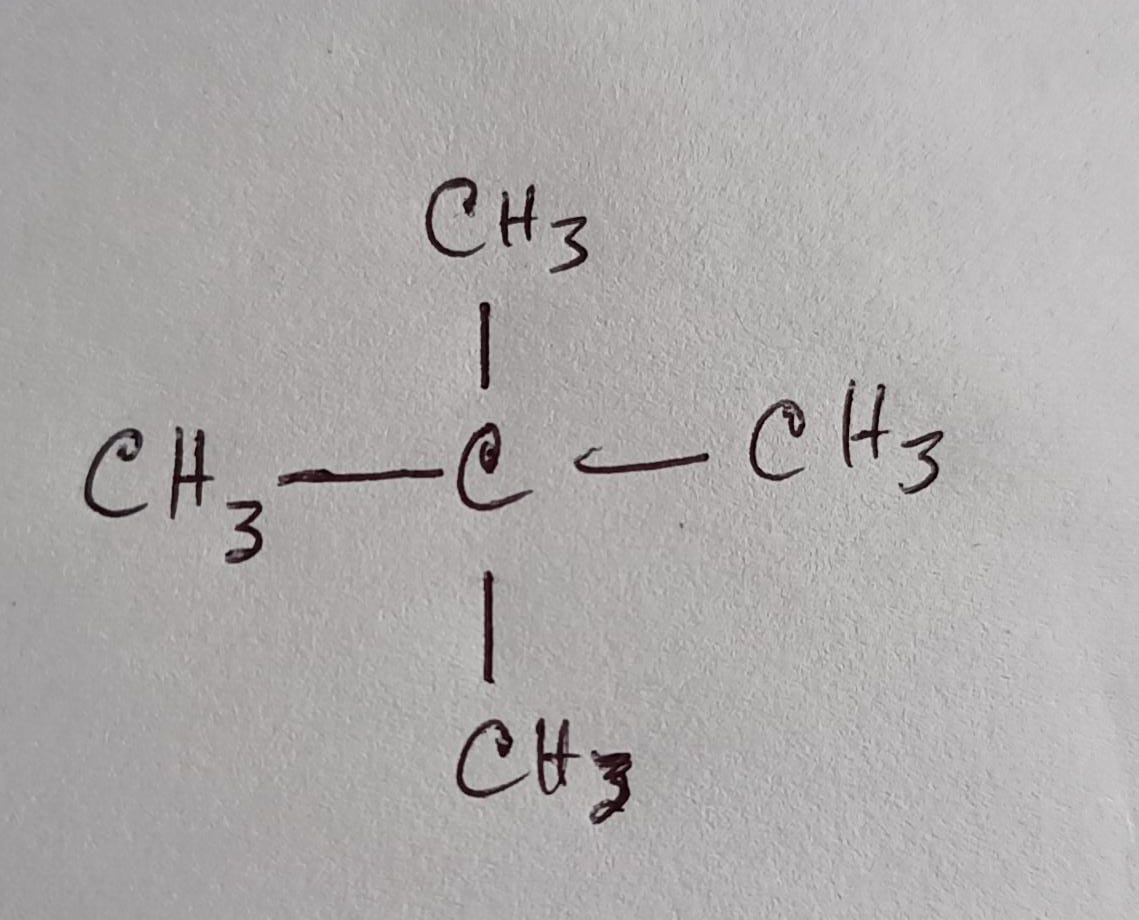 CH3
CH3 — C — CH3
CH3